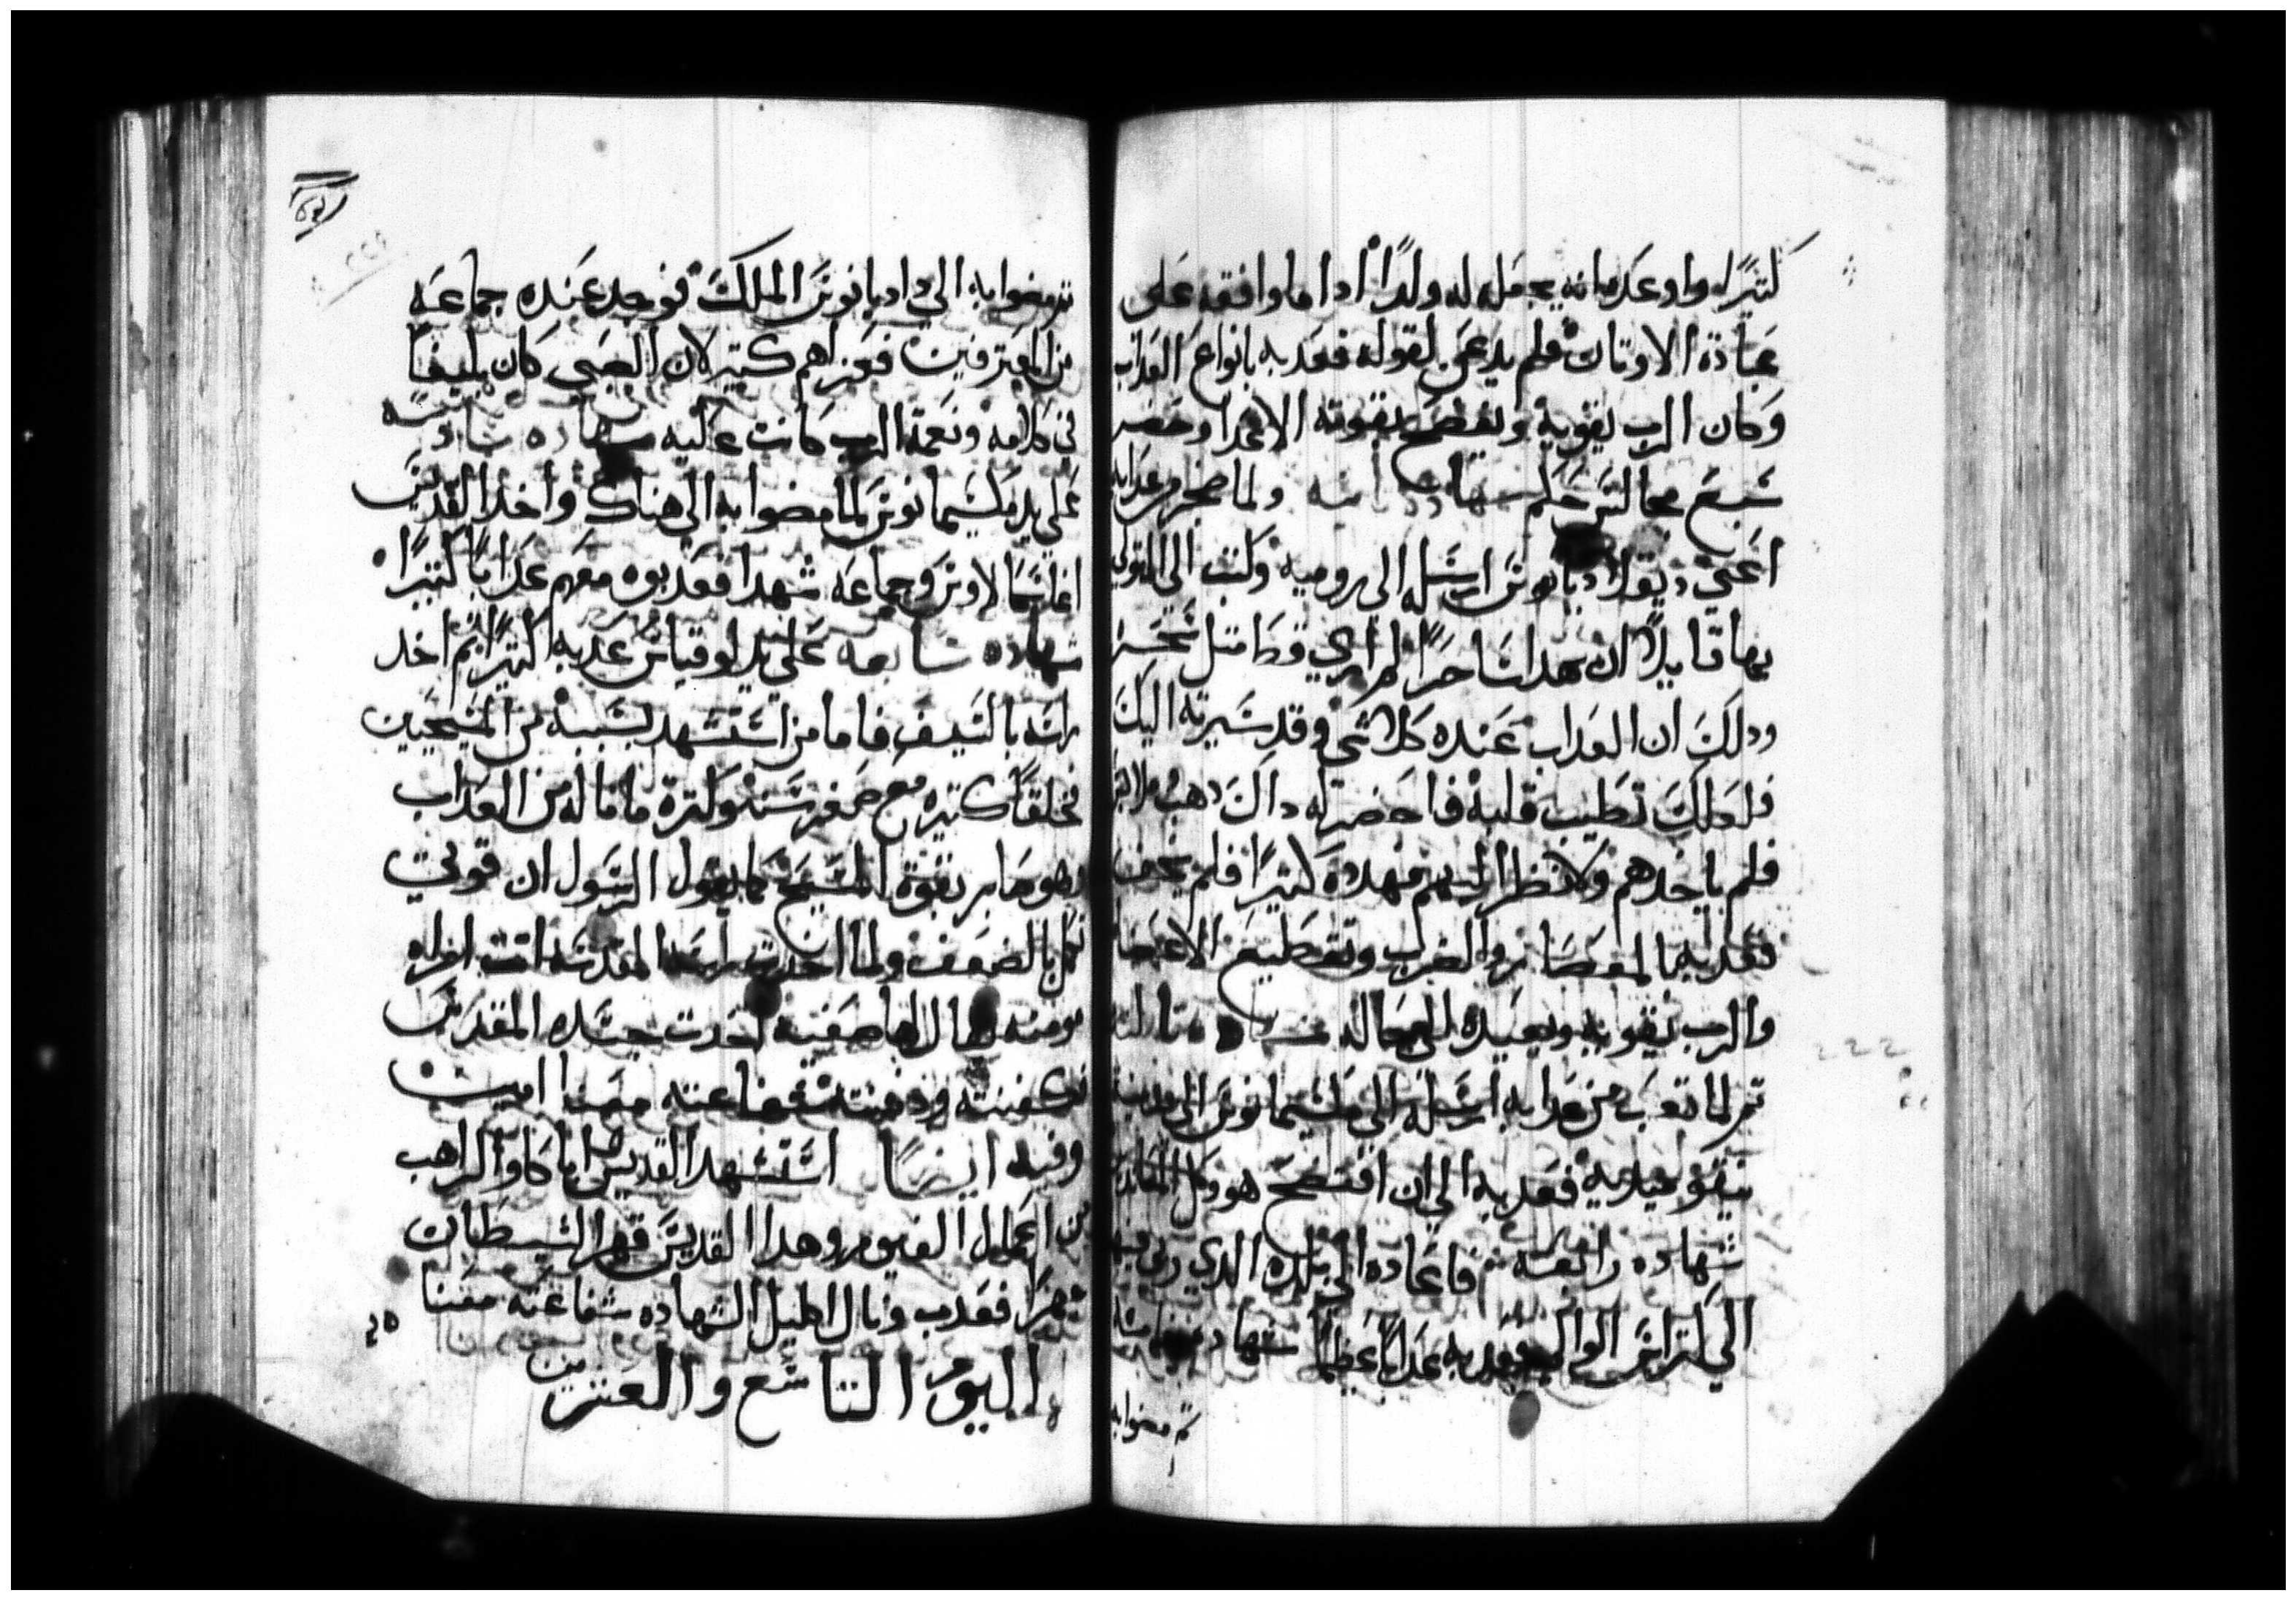 كتيرًا واوعده بانه يجعله له ولدًا ادا ما وافقه على
عبادة الاوتان فلم يدعن لقوله فعدبه بانواع العداب
وكان الرب يقويه ويفضح بقوته الاعدا وحضر
سبع مجالس حكم شهادة ولما ضجر من عدابه
اعني ديقلاديانوس ارسله الى روميه وكتب الى المتولي
بها قايلاً ان هدا ساحرًا لم ارى قط مثل سحره
ودلك ان العداب عنده كلا شي وقد سيرته اليك
فلعلك تطيب قلبه فاحضر له داك دهب
فلم ياخدهم ولا نظر اليهم فهدده كتيرًا فلم يخف
فعدبه بالمعصار والضرب وتقطيع الاعضا
والرب يقويه ويعيده الى حاله
تم لما تعب من عدابه ارسله الى مكسيمانوس الى مدينة
نيقوميديه فعدبه الى ان افتضح هو وكل
شهاده رابعه تم فاعاده الى بلده الدي ربى فيها
الى الوالي فعدبه عدابًا عظيمًا شهاده
تم مضوا به
تم مضوا به الى دقلاديانوس الملك فوجد عنده جماعه
من المعترفين فعزاهم كتير لان الصبي كان بليغًا
في كلامه ونعمة الرب كانت عليه شهاده سادسه
على يد مكسيمانوس لما مضوا به الى هناك واخد القديس
وجماعه شهدا فعدبوه معهم عدابًا كتيرًا
شهاده سابعه على يد لوقيانس عدبه كتيرًا تم اخد
راسه بالسيف فاما من استشهد بسببه من المسيحيين
فخلقًا كتيره مع صغر سنه وكترة ما ناله من العداب
وهو صابر بقوة المسيح كما يقول الرسول ان قوتي
تكمل بالضعف ولما اخدت راسه المقدسه اتت امراه
مومنه اخدت جسده المقدس
وكفنته ودفنته شفاعته معنا امين
وفيه ايضًا استشهد القديس ابا كاو الراهب
من اعمال الفيوم وهدا القديس قهر الشيطان
فعدب ونال اكليل الشهاده شفاعته معنا
اليوم التاسع والعشرين